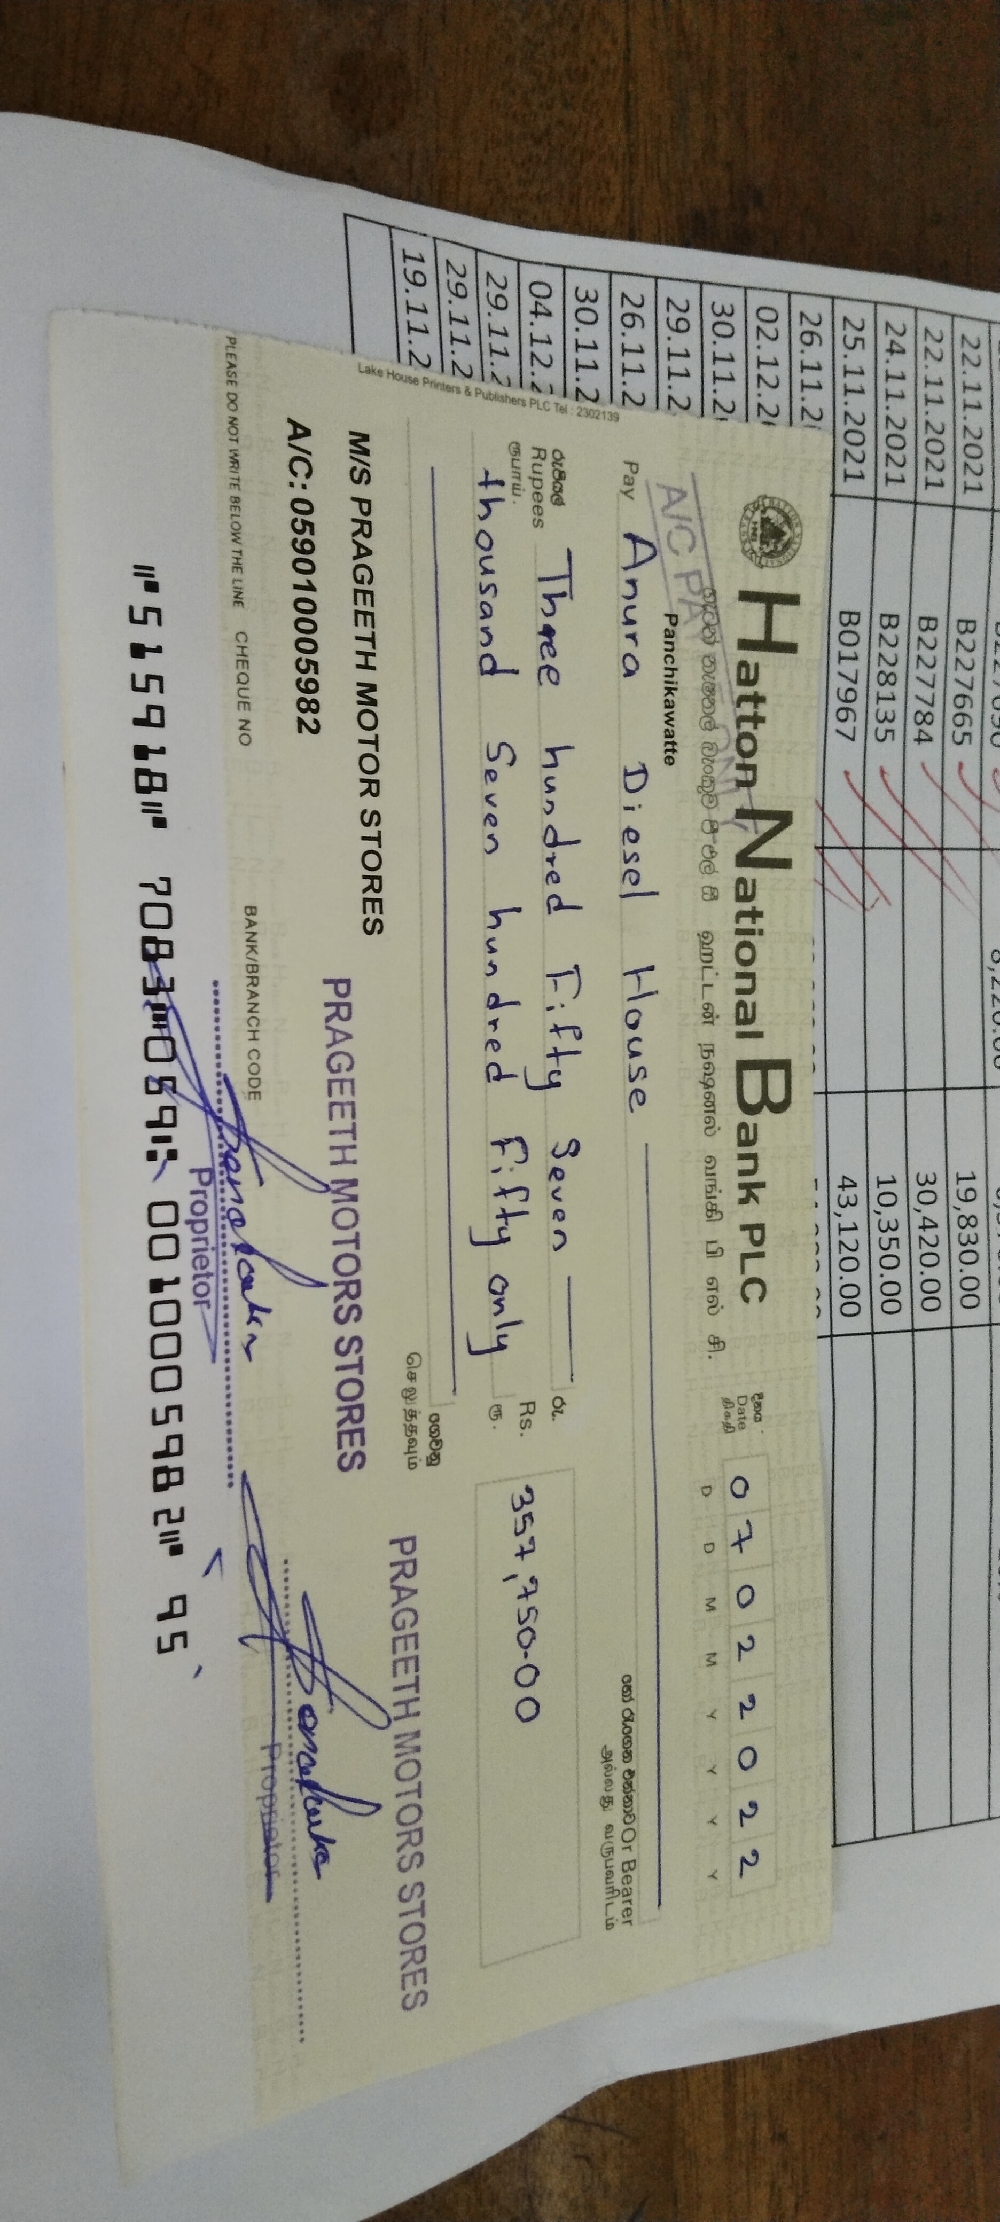 22.11.2021 B227665 19,830.00
22.11.2021 B227784 30,420.00
24.11.2021 B228135 10,350.00
25.11.2021 B017967 43,120.00
26.11.2
02.12.2
30.11.2
29.11.2
26.11.2
30.11.2
04.12.2
29.11.2
29.11.2
19.11.2
Hatton National Bank PLC
ஹட்டன் நஷனல் வங்கி பி எல் சி.
A/C PA ONLY
Panchikawatte
දිනය
Date
திகதி
0 7 0 2 2 0 2 2
D D M M Y Y Y Y
Pay Anura Diesel House
හෝ රැගෙන එන්නාට Or Bearer
அல்லது வருபவரிடம்
රුපියල්
Rupees
ரூபாய்.
Three hundred Fifty Seven
thousand Seven hundred Fifty only
රු.
Rs.
ரூ.
357,750-00
ගෙවනු
செலுத்தவும்
Lake House Printers & Publishers PLC Tel : 2302139
M/S PRAGEETH MOTOR STORES
A/C: 059010005982
PRAGEETH MOTORS STORES
PRAGEETH MOTORS STORES
Proprietor
Proprietor
PLEASE DO NOT WRITE BELOW THE LINE CHEQUE NO BANK/BRANCH CODE
⑈515918⑈ 7083⑉059⑆ 0010005982⑈ 95